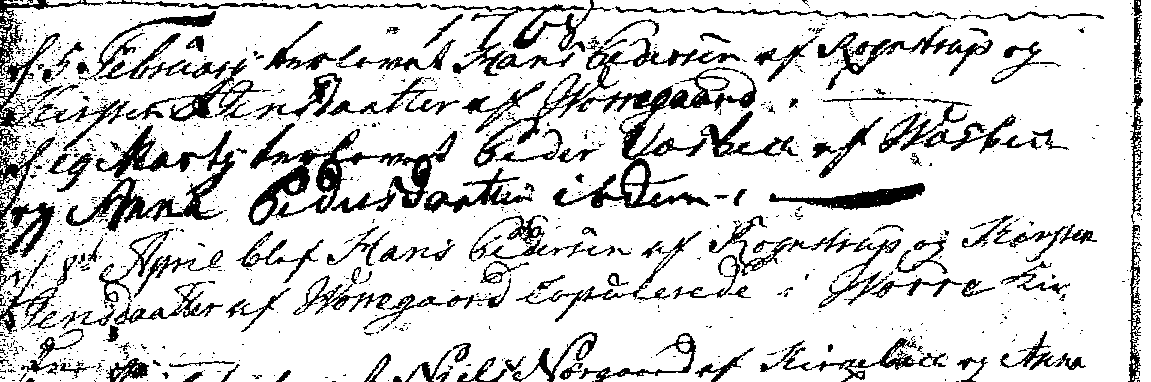 1768
d. 5 February trolovet Hans Pedersen af Rognstrup og
Kirsten Jensdaatter af Worregaard.
d. 19 Marty trolovet Peder Vasbeck af Wasbeck
og Anna Pedersdaatter ibdem
d. 8de April blef Hans Pedersen af Rognstrup og Kiersten
Jensdaatter af Worregaard Copulerede i Worre Kir
Niels Norgaard af og Anna